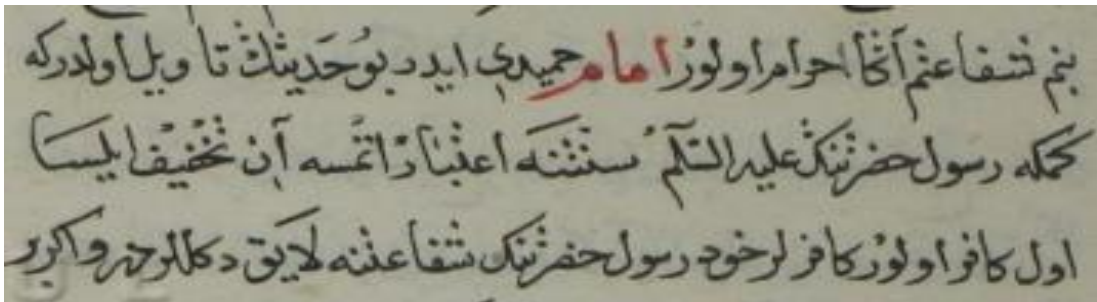 بنم شفاعتم آڭا احرام اولوُر امام حميدي ايدر بوُ حَديثڭ تاويل اولدركه
كمكه رسول حضرتنڭ عليه السّلمُ سنتنَه اعتباد اتمسه آنِ تخفيف ايليسا
اول كافر اولوُر كافرلر خود رسول حضرتنڭ شفاعتنه لايق دكللردر و اكر بر